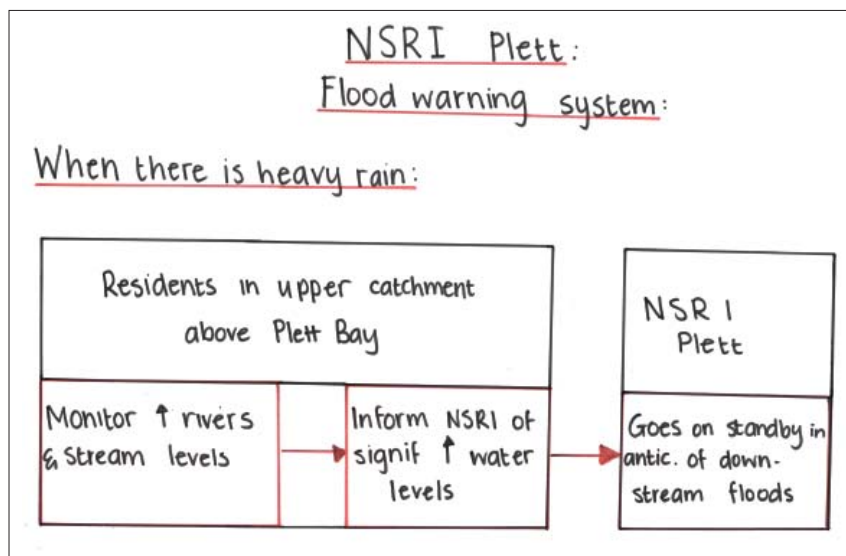 NSRI Plett:
Flood warning system:
When there is heavy rain:
Residents in upper catchment
above Plett Bay
NSRI
Plett
Monitor ↑ rivers
& stream levels
Inform NSRI of
signif ↑ water
levels
Goes on standby in
antic. of down-
stream floods